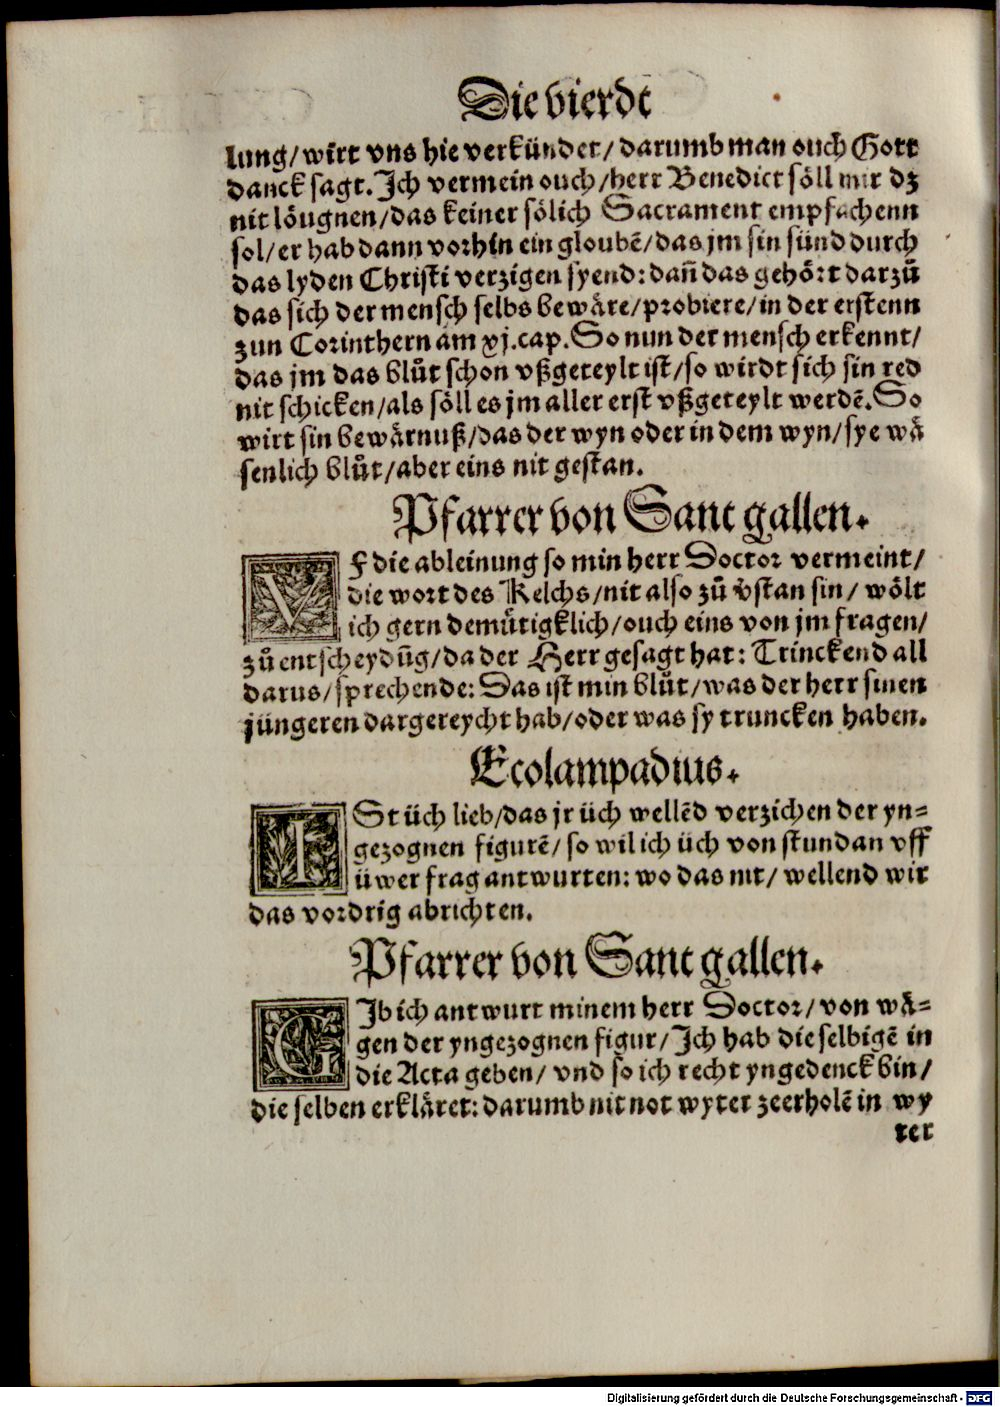 Die vierdt
lung/ wirt vns hie verkündet/ darumb man ouch Gott
danck sagt. Ich vermein ouch/ herr Benedict söll mir dz
nit löugnen/ das keiner sölich Sacrament empfachenn
sol/ er hab dann vorhin ein gloubē/ das jm sin sünd durch
das lyden Christi verzigen syend: dañ das gehört darzů
das sich der mensch selbs bewäre/ probiere/ in der erstenn
zun Corinthern am xj. cap. So nun der mensch erkennt/
das jm das blůt schon vßgeteylt ist/ so wirdt sich sin red
nit schicken/ als söll es jm aller erst vßgeteylt werdē. So
wirt sin bewärnuß/ das der wyn oder in dem wyn/ sye wä
senlich blůt/ aber eins nit gestan.
Pfarrer von Sant gallen.
VF die ableinung so min herr Doctor vermeint/
die wort des Kelchs/ nit also zů v̊stan sin/ wölt
ich gern demütigklich/ ouch eins von jm fragen/
zů entscheydūg/ da der Herr gesagt hat: Trinckend all
darus/ sprechende: Das ist min blůt/ was der herr sinen
jüngeren dargereycht hab/ oder was sy truncken haben.
Ecolampadius.
ISt üch lieb/ das jr üch wellēd verzichen der yn=
gezognen figurē/ so wil ich üch von stundan vff
üwer frag antwurten: wo das nit/ wellend wir
das vordrig abrichten.
Pfarrer von Sant gallen.
GIb ich antwurt minem herr Doctor/ von wä=
gen der yngezognen figur/ Ich hab die selbigē in
die Acta geben/ vnd so ich recht yngedenck bin/
die selben erkläret: darumb nit not wyter zeerholē in wy
ter
Digitalisierung gefördert durch die Deutsche Forschungsgemeinschaft - DFG